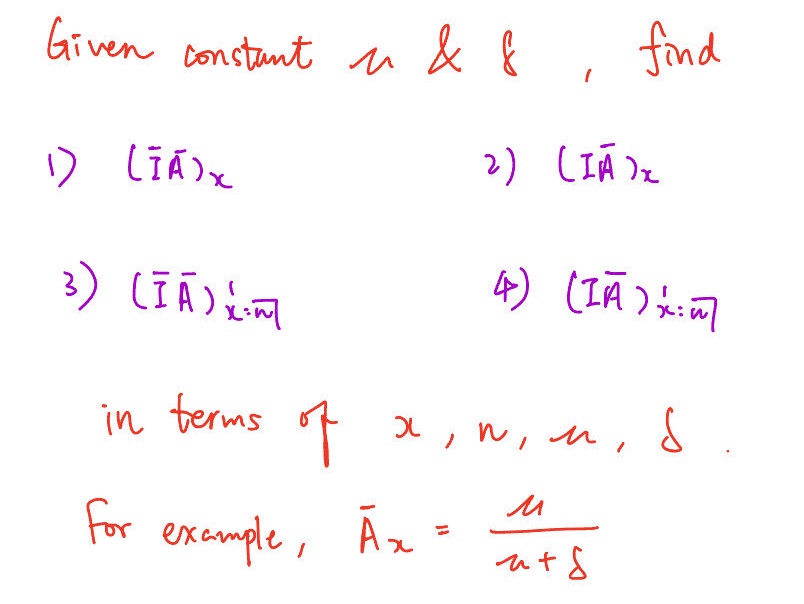 Given constant μ & δ , find
1) (ĪĀ)ₓ 2) (IĀ)ₓ
3) (ĪĀ)¹ₓ:n̅| 4) (IĀ)¹ₓ:n̅|
in terms of x , n, μ, δ .
For example, Āₓ = μ / μ + δ